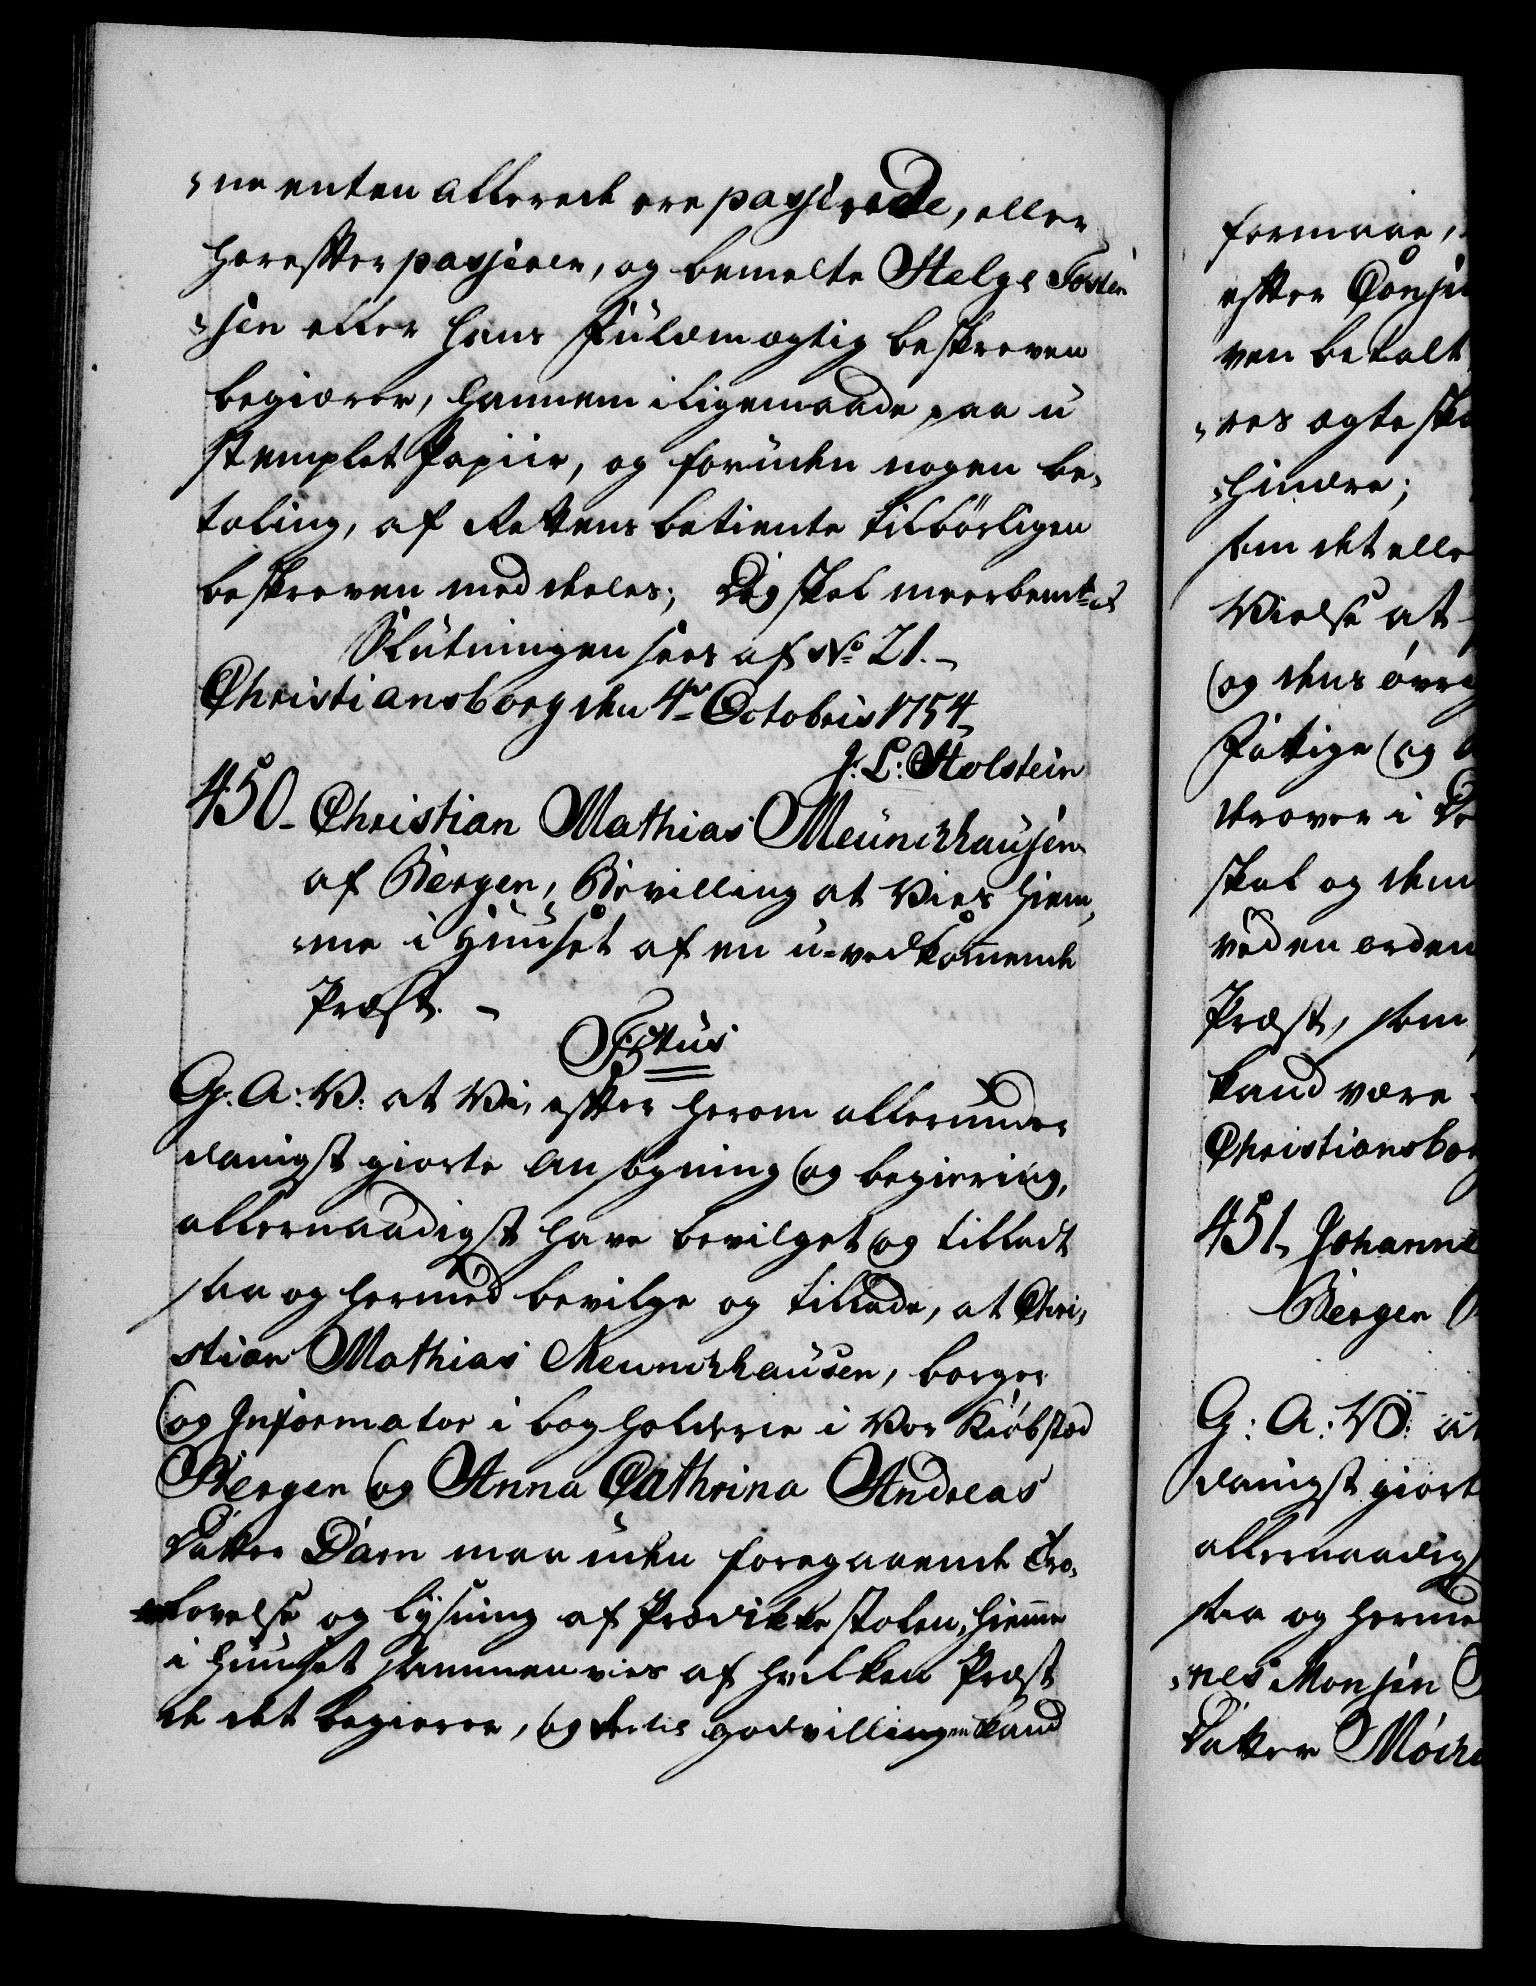 ne enten allerede ere passerede, eller
herefter passerer, og bemelte Helge Torsten
sen eller hans Fuldmægtig beskreven
begiærer, hannem iligemaade paa u
stemplet Papiir, og foruden nogen be,
taling, af Rettens betiente tilbörligen
beskreven meddeeles; Og skal meerbemte
Slutningen sees af No 21.
Christiansborg den 4de Octobris 1754
J. L: Holstein
450. Christian Mathias Meunckhausen
af Bergen, Bevilling at Vies hiem,
me i Huuset af en u-vedkommende
Præst.
Fictus
G. A: V: at Vi, efter herom allerunder
danigst giorte Ansøgning og begiering,
allernaadigst have bevilget og tilladt
saa og hermed bevilge og tillade, at Chri,
stian Mathias Meunckhausen, borger
og Informator i bogholderie i Vor Kiöbstæd
Bergen og Anna Cathrina Andreas
Datter Dam maa uden foregaaende Tro,
lovelse og lysning af Prædikestolen, hiemme
i Huuset sammenvies af hvilken Præst
de det begierer, og dertil godvilligen kand
formaae,
efter
ven betalt
res ægteska
hindre;
som det elle
Vielse at
og dens övri
Fattige og
drover i
skal og dem
ved en orden
Præst, som
kand være
Christiansborg
451. Johanne
Bergen
G: A: V: at
danigst giort
allernaadigs
saa og herme
nes Monsen
Datter